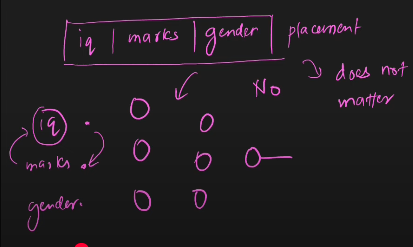 iq | marks | gender | placement
does not
No matter
iq
marks
gender.